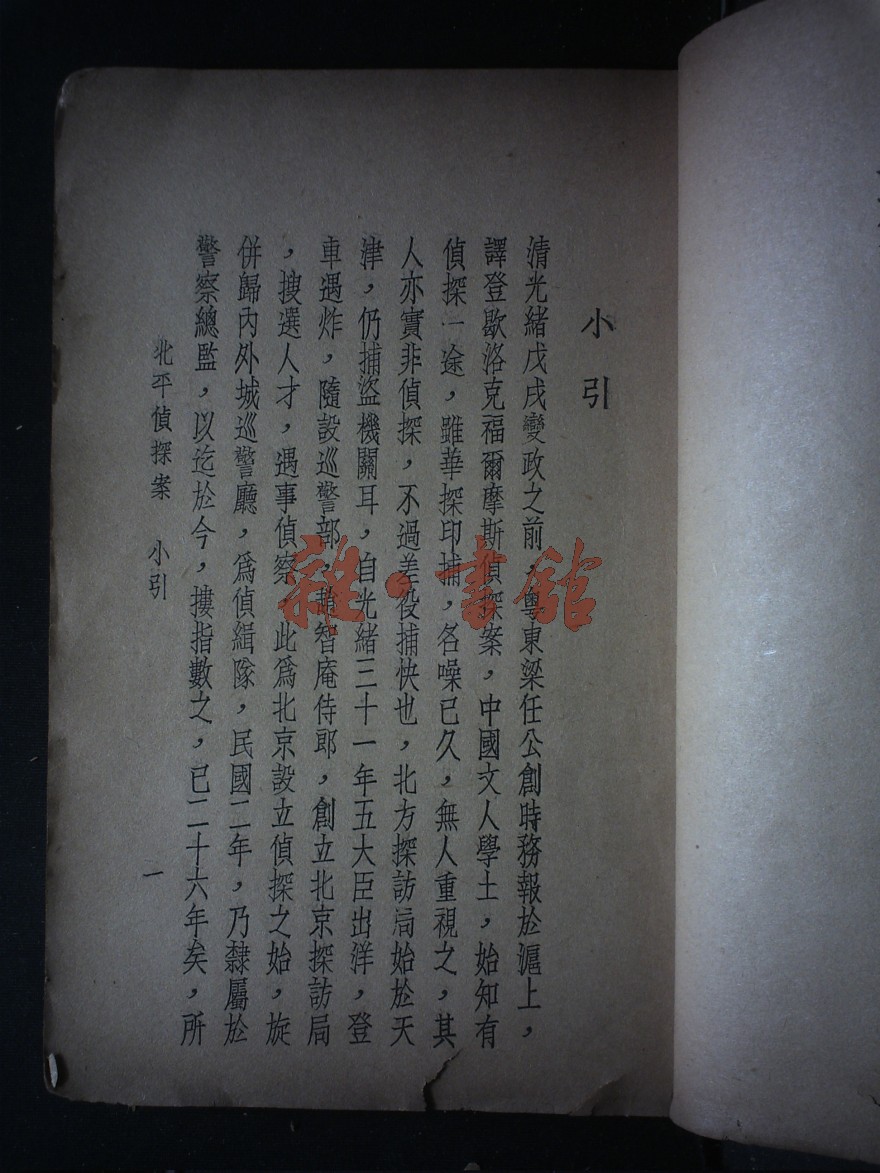 小引
清光緒戊戌變政之前，粵東梁任公創時務報於滬上，
譯登歇洛克福爾摩斯偵探案，中國文人學士，始知有
偵探一途，雖華探印捕，名噪已久，無人重視之，其
人亦實非偵探，不過差役捕快也，北方探訪局始於天
津，仍捕盜機關耳，自光緒三十一年五大臣出洋，登
車遇炸，隨設巡警部，趙智庵侍郎，創立北京探訪局
，搜選人才，遇事偵察，此爲北京設立偵探之始，旋
併歸內外城巡警廳，爲偵緝隊，民國二年，乃隸屬於
警察總監，以迄於今，摟指數之，已二十六年矣，所
北平偵探案　小引
一
雜·書館